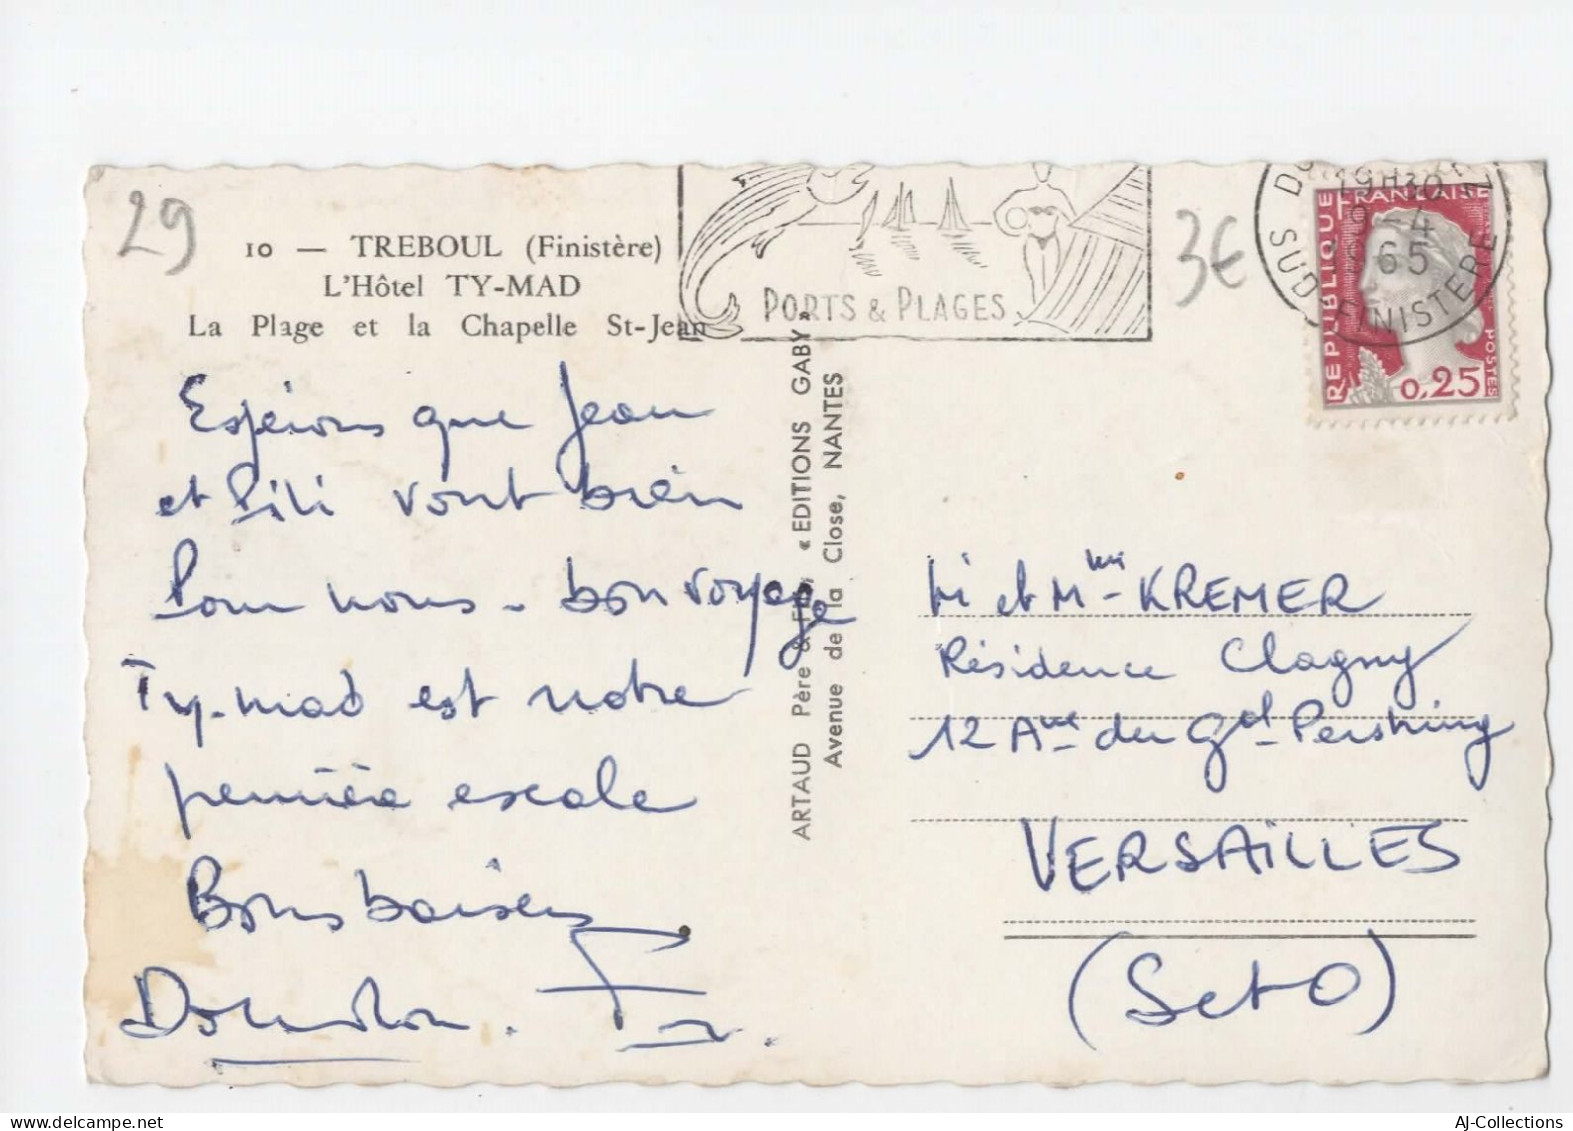 29
10 — TREBOUL (Finistère)
L'Hôtel TY-MAD
La Plage et la Chapelle St-Jean
PORTS & PLAGES
3€
19H30
9-4
1965
SUD FINISTERE
REPUBLIQUE FRANÇAISE
POSTES
0,25
Espérons que Jean
et Lili vont bien
Pour nous - bon voyage
Ty-mad est notre
première escale
Bons baisers
ARTAUD Père & Fils, « EDITIONS GABY »
Avenue de la Close, NANTES
M et Mme KREMER
Résidence Clagny
12 Ave du Gal Pershing
VERSAILLES
(S et O)
delcampe.net
AJ-Collections